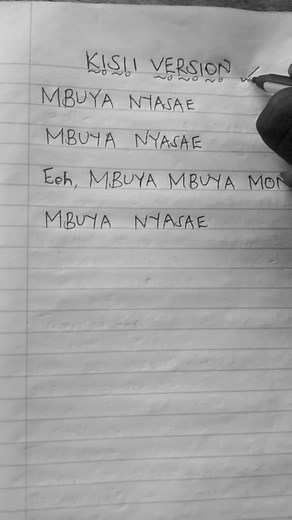 KISII VERSION
MBUYA NYASAE
MBUYA NYASAE
Eeh, MBUYA MBUYA MON
MBUYA NYASAE